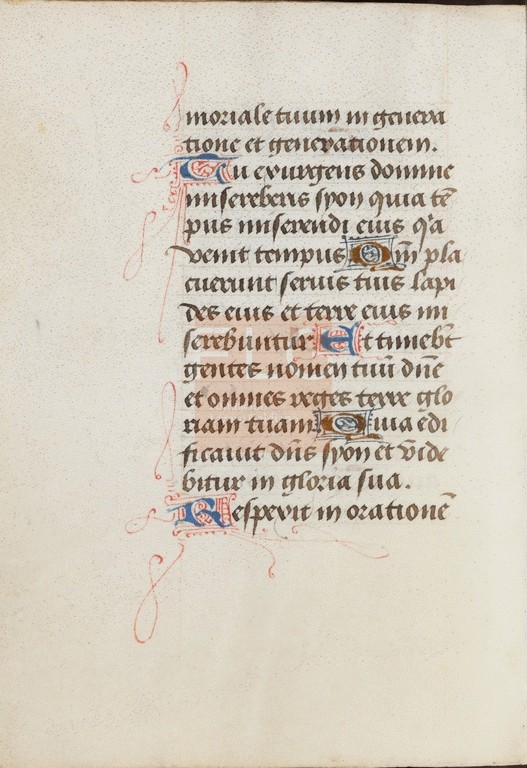 moriale tuum in genera
tione et generationem.
Tu exurgens domine
misereberis syon quia tē
pus miserendi eius q̄a
venit tempus Qm̄ pla
cuerunt servis tuis lapi
des eius et terre eius mi
serebuntur Et timebt̄
gentes nomen tuū dn̄e
et omnes reges terre glo
riam tuam Quia edi
ficavit dn̄s syon et vide
bitur in gloria sua.
Respexit in orationē